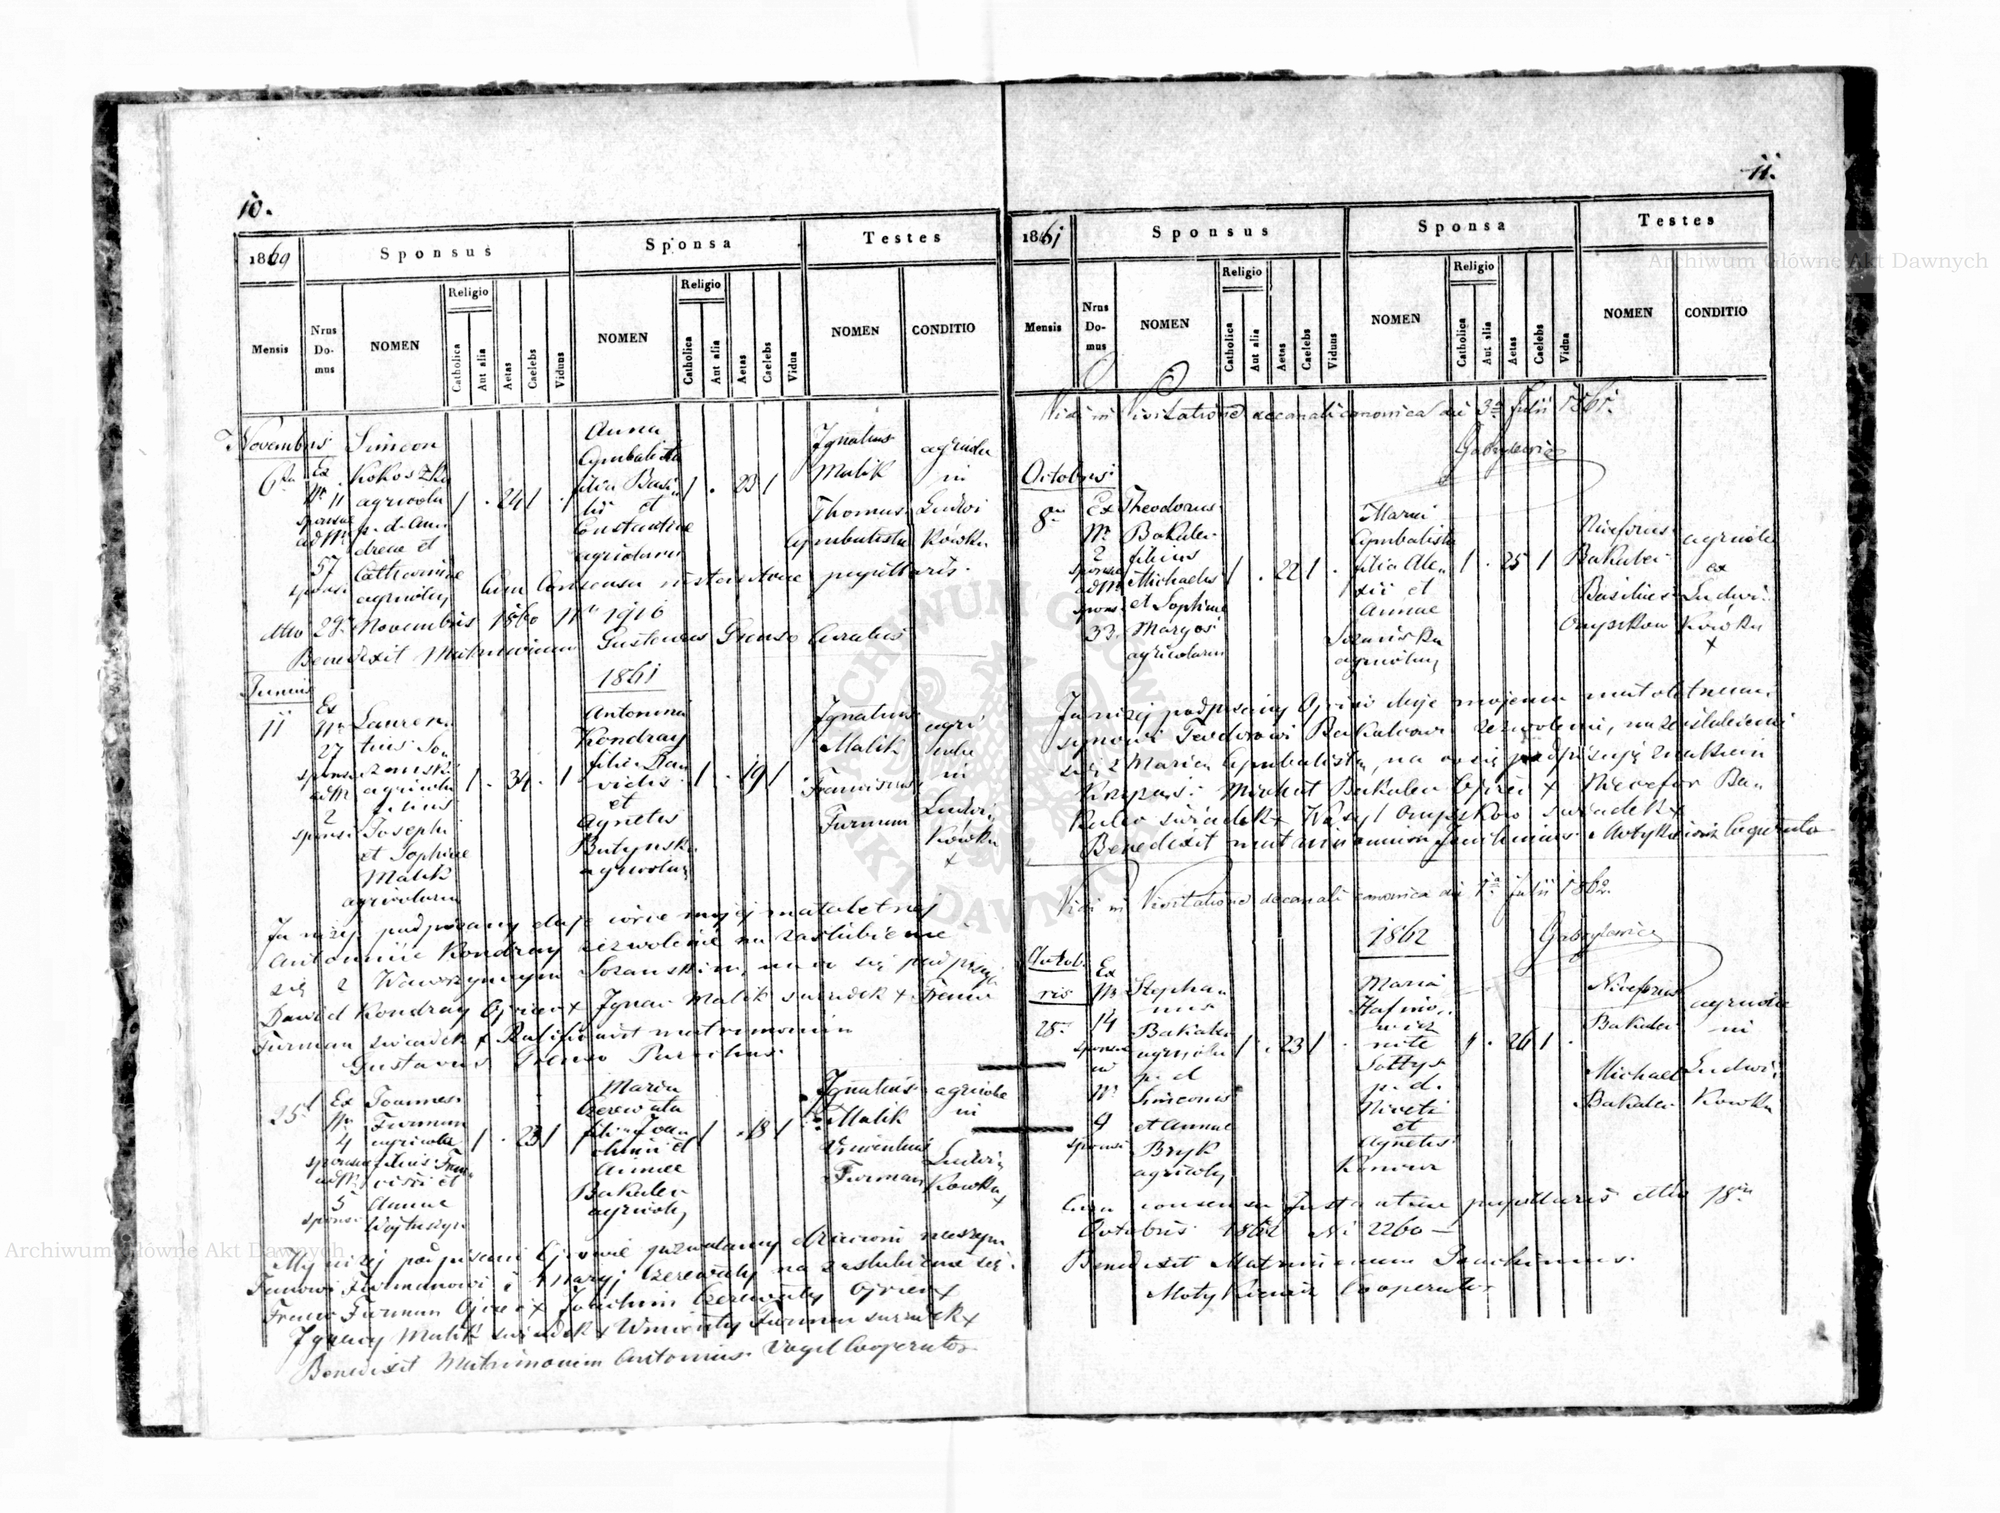 10.
1860
Sponsus
Sponsa
Testes
Mensis
Nrus Do- mus
NOMEN
Religio
Catholica
Aut alia
Aetas
Caelebs
Viduus
NOMEN
Religio
Catholica
Aut alia
Aetas
Caelebs
Vidua
NOMEN
CONDITIO
Novembris
6ta
Ex
Nr 11
sponsae
ad Nr
57
sponsi
Simeon
Kokoszka
agricola
p. d. An-
dreae et
Catharinae
agricolar
1 . 24 1 .
Anna
Cymbalista
filia Basi-
lii et
Constantiae
agricolarum
1 . 23 1
Ignatius
Malik
Thomas
Cymbalista
agricolae
in
Ludwi
kówka
Cum Consensu instantiae pupillaris
ddto 29 Novembris 1860 Nr 1916
Benedixit Matrimonium Gustavus Curatus
1861
Junius
11
Ex
Nr
27
sponsi
ad Nr
2
sponsi
Lauren-
tius So-
zanski
agricola
filius
Josephi
et Sophiae
Malik
agricolarum
1 . 34 . 1
Antonina
Kondray
filia Da-
vidis
et
Agnetis
Butynska
agricolar
1 . 19 1 .
Ignatius
Malik
Franciscus
Furman
agri
colae
in
Ludwi
kówka
+
Ja niżej podpisany daję córce mojej małoletniej
Antoninie Kondray zezwolenie na zaślubienie
się z Wawrzyncem Sozanskim, na co się podpisuję
Dawid Kondray Ojciec + Ignac Malik swiadek + Franc
Furman swiadek + Ratificavit matrimonium
Gustavus Parochus
25
Ex
Nr
4
sponsae
ad Nr
5
sponsi
Joannes
Furman
agricola
filius Fran-
cisci et
Annae
1 . 23 1
Maria
Czerewata
filia Joa-
chimi et
Annae
Bakalec
agricolar
1 . 18 1 .
Ignatius
Malik
Vincentius
Furman
agricolae
in
Ludwi
kówka
+
My niżej podpisani Ojcowie pozwalamy dzieciom naszym
Janowi Furmanowi i Maryi Czerewaty na zaslubienie się.
Franc Furman Ojciec + Joachim Czerewaty Ojciec +
Ignacy Malik swiadek + Wincenty Furman swiadek +
Benedixit Matrimonium Antonius Vogel Cooperator
11.
1861
Sponsus
Sponsa
Testes
Mensis
Nrus Do- mus
NOMEN
Religio
Catholica
Aut alia
Aetas
Caelebs
Viduus
NOMEN
Religio
Catholica
Aut alia
Aetas
Caelebs
Vidua
NOMEN
CONDITIO
Vidi in Visitatione decanali canonica die 3a Julii 1861.
Gabrylewicz
Octobris
8
Ex
Nr
2
sponsae
ad Nr
spons
33
Theodorus
Bakalec
filius
Michaelis
et Sophiae
Maryos
agricolarum
1 . 22 1 .
Maria
Cymbalista
filia Ale-
xii et
Annae
Sozańska
agricolar
1 . 25 1
Niceforus
Bakalec
Basilius
Onyszkow
agricolae
ex
Ludwi
kówka
+
Ja niżej podpisany Ojciec daję mojemu małoletniemu
synowi Teodorowi Bakalcowi zezwolenie, na zaslubienie
się z Maria Cymbalista, na co się podpisuję znakiem
Krzyża: Michał Bakalec Ojciec + Nicefor Ba-
kalec swiadek + Wasyl Onyszkow swiadek +
Benedixit matrimonium Joachimus Motykiewicz Cooperator
Vidi in Visitatione decanali canonica die 1a Julii 1862.
Gabrylewicz
1862
Octob-
ris
25
Ex
Nr
14
sponsae
in
Nr
9
sponsi
Stepha-
nus
Bakalec
agricola
p. d.
Simeonis
et Annae
Bryk
agricolar
1 . 23 1 .
Maria
nata
Sołtys
p. d.
Niceti
et
Agnetis
1 . 26 1 .
Niceforus
Bakalec
Michael
Bakalec
agricolae
in
Ludwi
kówka
Cum consensu Instantiae pupillaris ddto 18
Octobris 1862 Nr 2260 —
Benedixit Matrimonium Joachimus
Motykiewicz Cooperator
Archiwum Główne Akt Dawnych
Archiwum Główne Akt Dawnych
ARCHIWUM GŁÓWNE AKT DAWNYCH